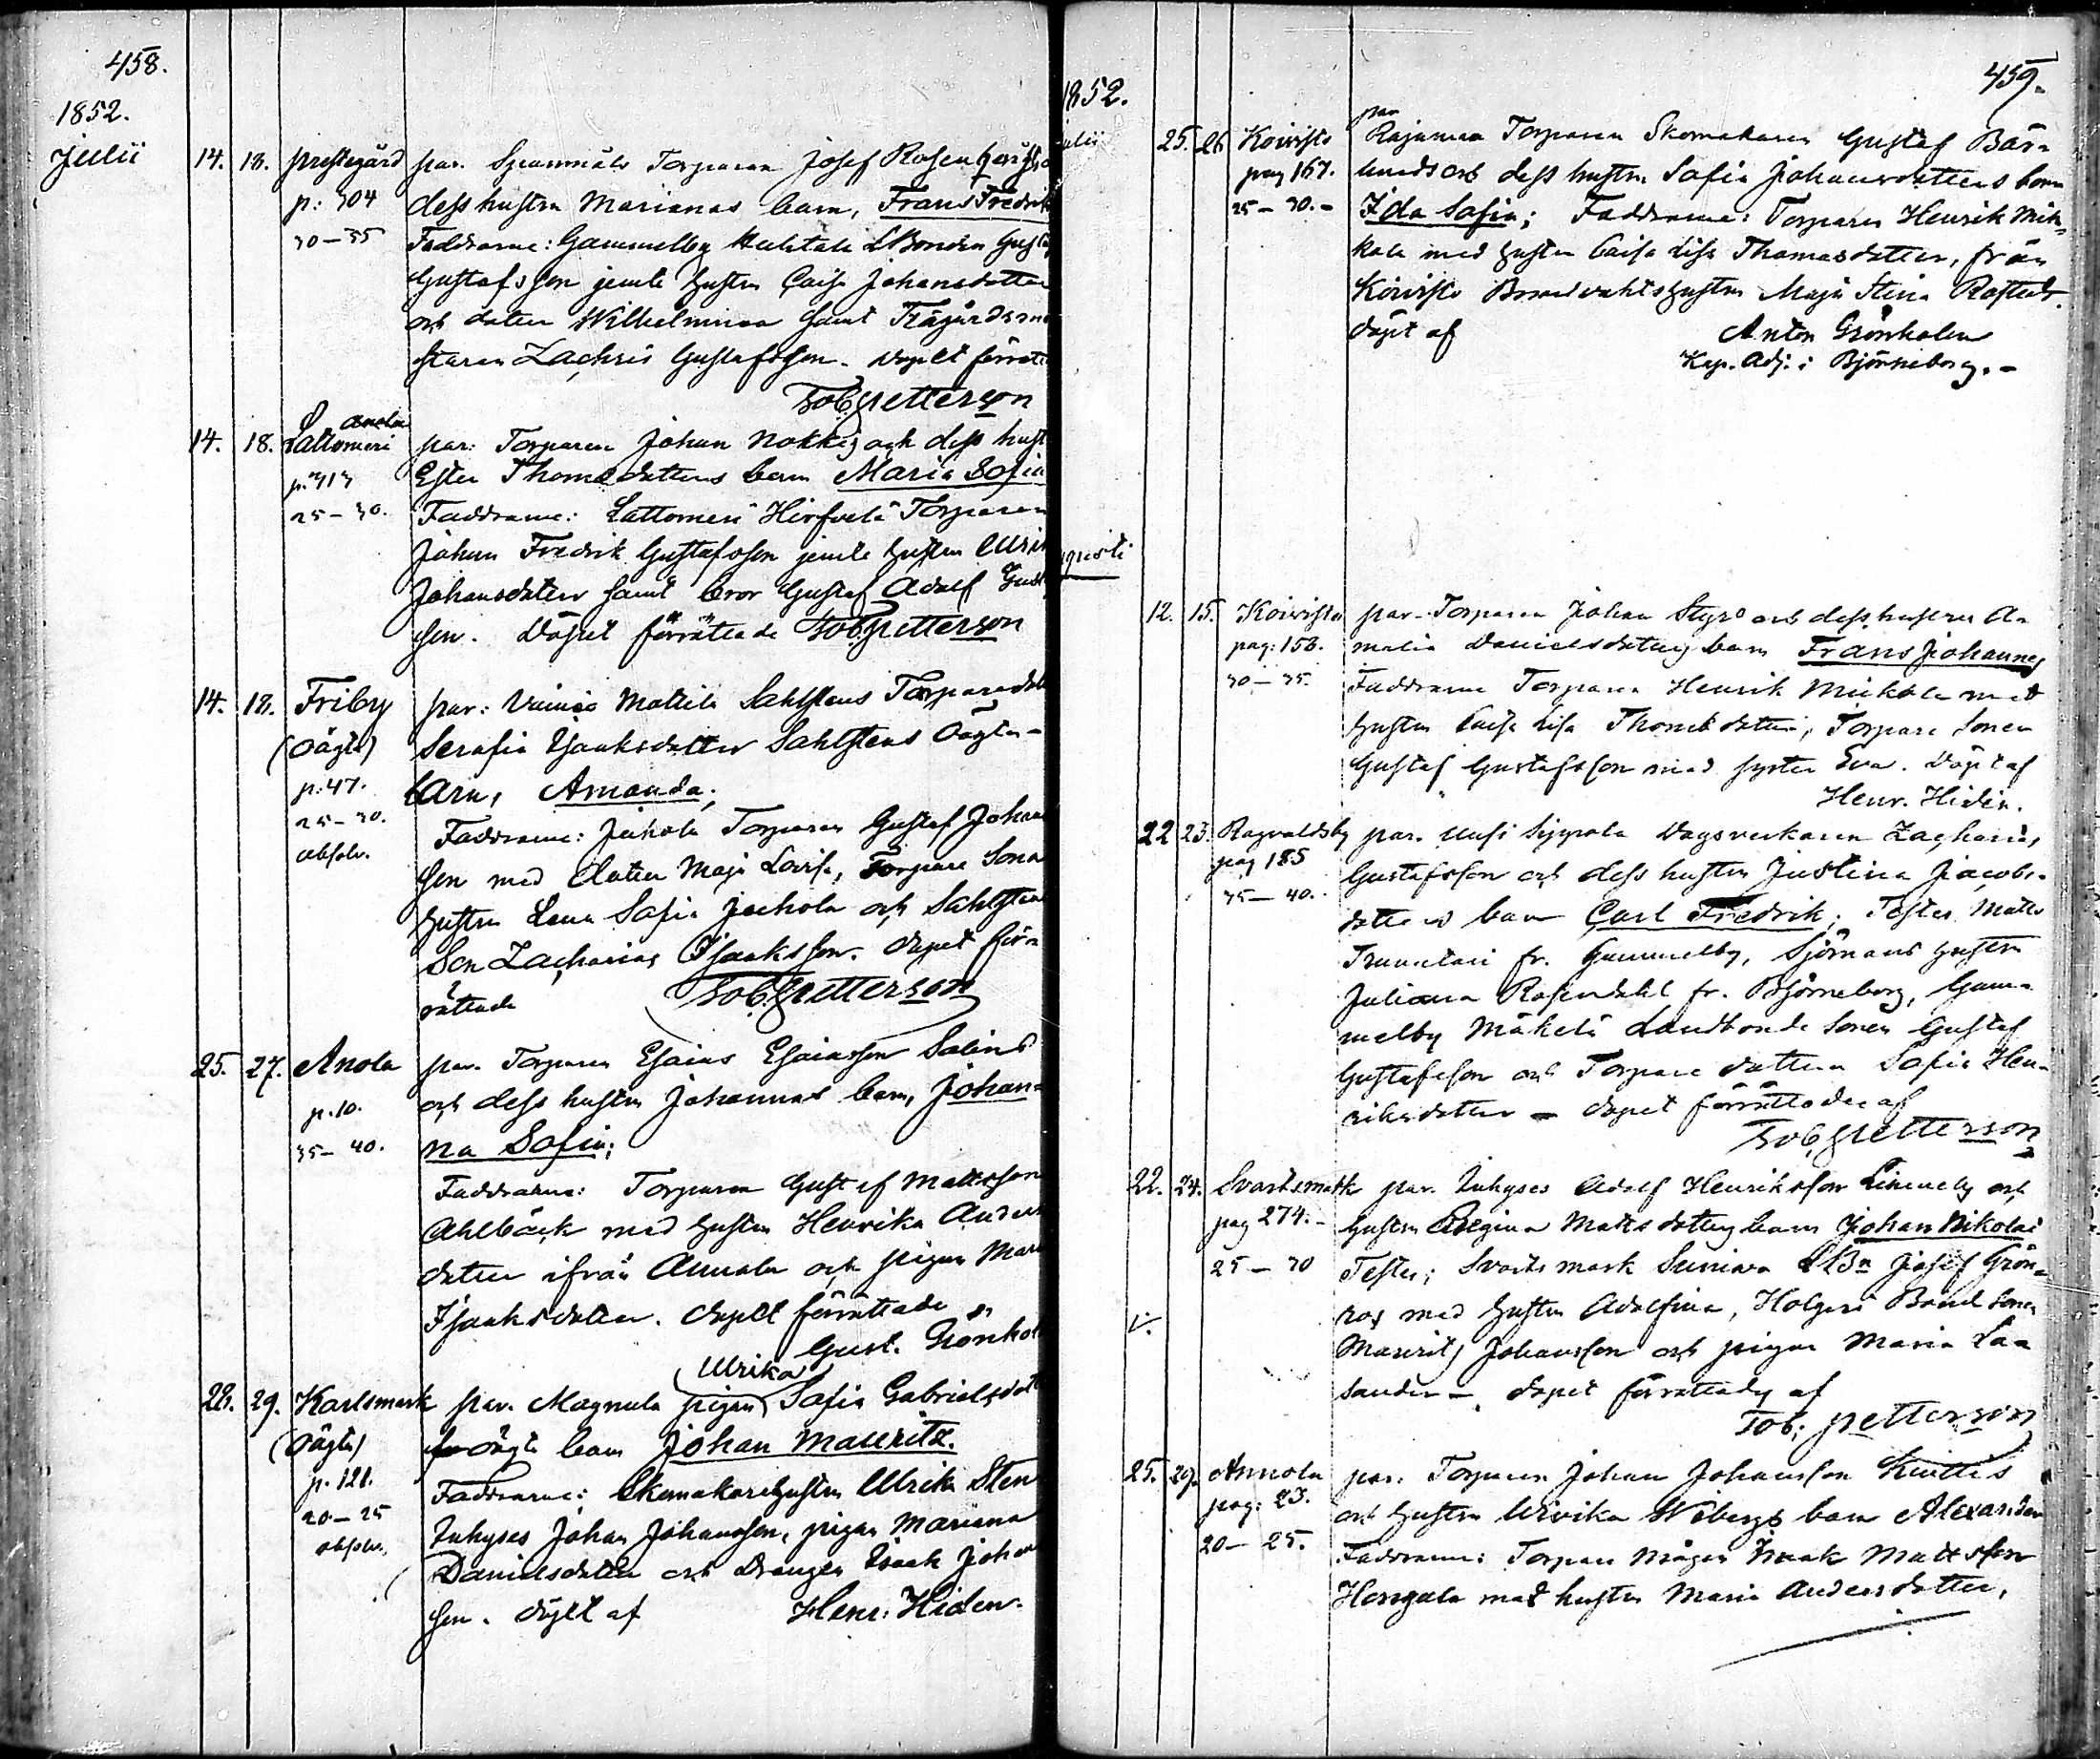 458.
1852.
Julii
14. 18. prestegård par. Torparen Josef Rosenbergs o
p: 304 dess hustru Marianas barn, Frans Fredrik
30-35 Faddrarne: Gammelby LBonden Gust
Gustafsson jemte hustru Caisa Johansdotter
och dotter Wilhelmina samt Trägårdsmä
staren Zachris Gustafsson. Dopet förrätt
Tob. Petterson
Lattomeri
14. 18. par: Torparen Johan Nokkis och dess hust
p. 313 Ester Thomædotters barn Maria Sofia
25-30. Faddrarne: Lattomeri Hirfvelä Torparen
Johan Fredrik Gustafsson jemte hustru Ulrik
Johansdotter samt bror Gustaf Adolf Gust
son. Döpet förrättade Tob. Petterson
14. 18. Friby par: Mattila Sahlstens Torparedot
(oägta) Serafia Isaksdotter Sahlstens Oägta-
p. 47. barn, Amanda;
25-30. Faddrarne: Juhola Torparen Gustaf Johan
absolv. son med dotter Maja Lovisa, Torpare Sona
hustru Lena Sofia Juhola och Sahlsten
Son Zacharias Isaksson. Dopet för-
rättade Tob. Petterson
25. 27. Anola par. Torparen Esaias Esaiasson Salins
p. 10. och dess hustru Johannas barn, Johan-
35-40. na Sofia;
Faddrarne: Torparen Gustaf Mattsson
Ahlbäck med hustru Henrika Anders
dotter ifrån Annola och pigan Mari
Isaksdotter. Dopet förrättade
Gust. Grönhol
Ulrika
28. 29. Karlsmark par. Magnula pigan Sofia Gabrielsdott
(oägta) oägta barn Johan Mauritz.
p. 121. Faddrarne: Skomakarehustru Ulrika Sten
20-25 Inhyses Johan Johansson, pigan Mariana
absolv. Danielsdotter och Drängen Isaak Johan
son. Döpt af Henr. Hiden.
459.
1852.
ulii
25. 26 Koivisto par Rajamaa Torparen Skomakaren Gustaf Bär-
pag 167. lunds och dess hustru Sofia Johansdotters barn
25-30.- Ida Sofia; Faddrarne: Torparen Henrik Mik-
kola med hustru Caisa Lisa Thomasdotter, från
Koivisto hustru Maja Stina Rosted.
döpt af Anton Grönholm
Kap. Adj. i Björneborg.-
gusti
12. 15. Koivisto par. Torparen Johan Styrs och dess hustru A-
pag: 158. malia Danielsdotters barn Frans Johannes
30-35. Faddrarne Torparen Henrik Mickola med
hustru Caisa Lisa Thomædotter, Torpare Sonen
Gustaf Gustafsson med syster Eva. Döpt af
Henr. Hidén.
22 23. Ragvaldsby par. Uusi Sippola Dagsverkaren Zacharias
pag 185 Gustafsson och dess hustru Justina Jacobs-
35-40. dotters barn Carl Fredrik; Testes Matts
fr. Gammelby, Sjömans hustru
Juliana Rosendahl fr. Björneborg, Gam-
melby Mäkelä Landbonde Sonen Gustaf
Gustafsson och Torpare dottern Sofia Hen-
riksdotter - Dopet förrättades af
Tob. Petterson
22. 24. Svartsmark par. Inhyses Adolf Henriksson Linneby och
pag 274.- hustru Regina Mattsdotters barn Johan Nikolai
25-30 Testes; Svartsmark Sunniva LBn Josef Grön-
roos med hustru Adolfina, Holgers Bond Sonen
Maurits Johansson och pigan Maria Laa
sander -. Dopet förrättades af
Tob. Petterson
25. 29. Annola par. Torparen Johan Johansson Knuttis
pag: 23. och hustru Ulrika Wibergs barn Alexander
20-25. Faddrarne: Torpare mågen Isaak Mattsson
Hongala med hustru Maria Andersdotter,